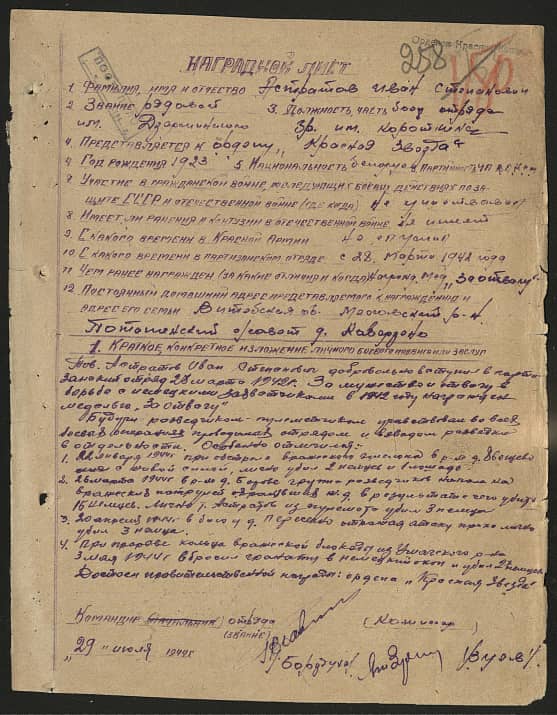 258
НАГРАДНОЙ ЛИСТ
1 Фамилия, имя и отчество Астратов Иван Степанович
2 Звание рядовой 3. Должность, часть боец отряда
им. Дзержинского бр. им. Короткина
4. Представляется к ордену „Красная Звезда"
4 Год рождения 1923 5. Национальность белорус 6 Партийность
7 Участие в гражданской войне, последующих боевых действиях по за-
щите СССР и отечественной войне (где когда) не участвовал
8 Имеет ли ранения и контузии в отечественной войне не имеет
9 С какого времени в Красной Армии не служил
10 С какого времени в партизанском отряде с 28 марта 1942 года
11 Чем ранее награжден (за какие отличия и когда) Награжд. мед „За отвагу"
12 Постоянный домашний адрес представляемого к награждению и
адрес его семьи Витебская об.
1. Краткое, конкретное изложение личного боевого подвига или заслуг
Тов. Астратов Иван Степанович добровольно вступил в парти-
занский отряд 28 марта 1942 г. За мужество и отвагу в
борьбе с немецкими захватчиками в 1942 году награжден
медалью „За отвагу"
Будучи разведчиком-пулеметчиком участвовал во всех
боевых операциях проводимых отрядом и взводом разведки
в отдельности. Особенно отличился:
1. 22 января 1944 г при обстреле вражеского эшелона в р-не д.
с живой силой, лично убил 2 немцев и лошадь
2. 26 марта 1944 г в р-не д. группа разведчиков напала на
вражеский патруль в результате чего убито
16 немцев. Лично т. Астратов из пулемета убил 3 немца
3. 20 апреля 1944 г в бою у д. отражая атаку прот. лично
убил 3 немца.
4. При прорыве кольца вражеской блокады из Ушачского р-на
3 мая 1944 г вбросил гранату в немецкий окоп и убил 2 немцев
Достоин правительственной награды: ордена „Красная Звезда"
Командир отряда (Комиссар)
(звание)
„29" июля 1944 г